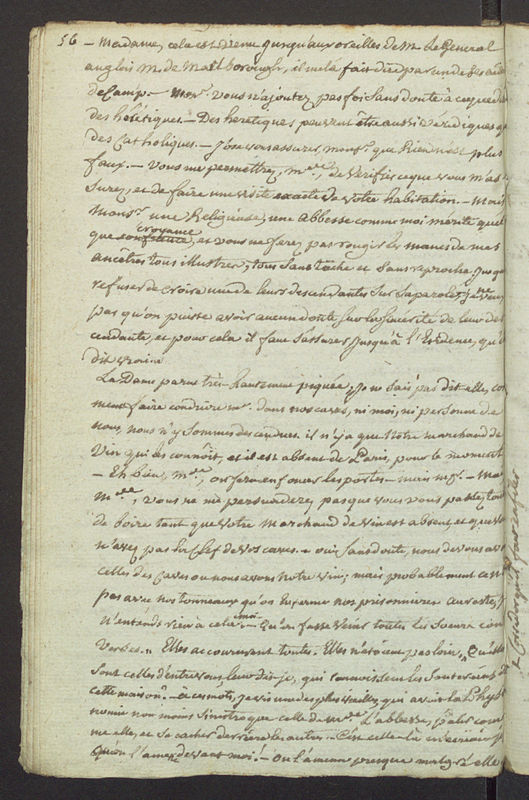 56
– Madame, cela est venu jusqu'aux oreilles de M. Le Général
anglois M. de Marlborough, il me l'a fait dire par un de ses aides
de Camp. – Mons.r vous n'ajoutez pas foi sans doute à ce que
des hérétiques. – Des heretiques peuvent être aussi véridiques q
des Catholiques. – J'ose vous assurer, mons.r que rien n'est plus
faux. – Vous me permettrez, m.me, de vérifier ce que vous m'as
surez, et de faire une visite exacte de votre habitation. – Mais
Mons.r une Religieuse, une abbesse comme moi mérite quel
croyance
que confiance, et vous ne ferez pas rougir les manes de mes
ancêtres tous illustres, tous sans tâche et sans reproche, jusqu
refuser de croire une de leurs descendantes sur sa parole! – je ne veux
pas qu'on puisse avoir aucun doute sur la sincérité de leur des
cendante, et pour cela il faut s'assurer jusqu'à l'Evidence, qu'
dit vrai.
La Dame parut très-hautement piquée, Je ne sais pas dit-elle, co
ment faire conduire m.r dans nos caves, ni moi, ni personne de
nous, nous n'y sommes descendues. il n'y a que Notre marchand de
Vin qui les connoit, et il est absent de Paris, pour le moment
– Eh bien, m.me, on fera enfoncer les portes – mais m.r! – Ma
M.me, vous ne me persuaderez pas que vous vous passez tou
de boire tant que votre Marchand de vin est absent, et que v
n'avez pas la Clef de vos caves. – oui sans doute, nous devons av
celles des caves ou nous avons notre vin; mais probablement ce n'
pas avec nos tonneaux qu'on Enferme nos prisonnieres au reste, j
n'entends rien à cela m.r – Qu'on fasse venir toutes les Soeurs con
verses. – Elles accoururent toutes. Elles n'étoient pas loin. Quelles
sont celles d'entre vous, leur dis-je, qui connoissent les Souterains de
cette maison? – à ces mots, je vis une des plus vieilles, qui avoit la Phy
nomie non moins Sinistre que celle de m.me L'abbesse, pâlir com
me elle, et se cacher derriere les autres. – C'est celle-là
qu'on l'amene devant moi! – on l'amena presque malgré elle